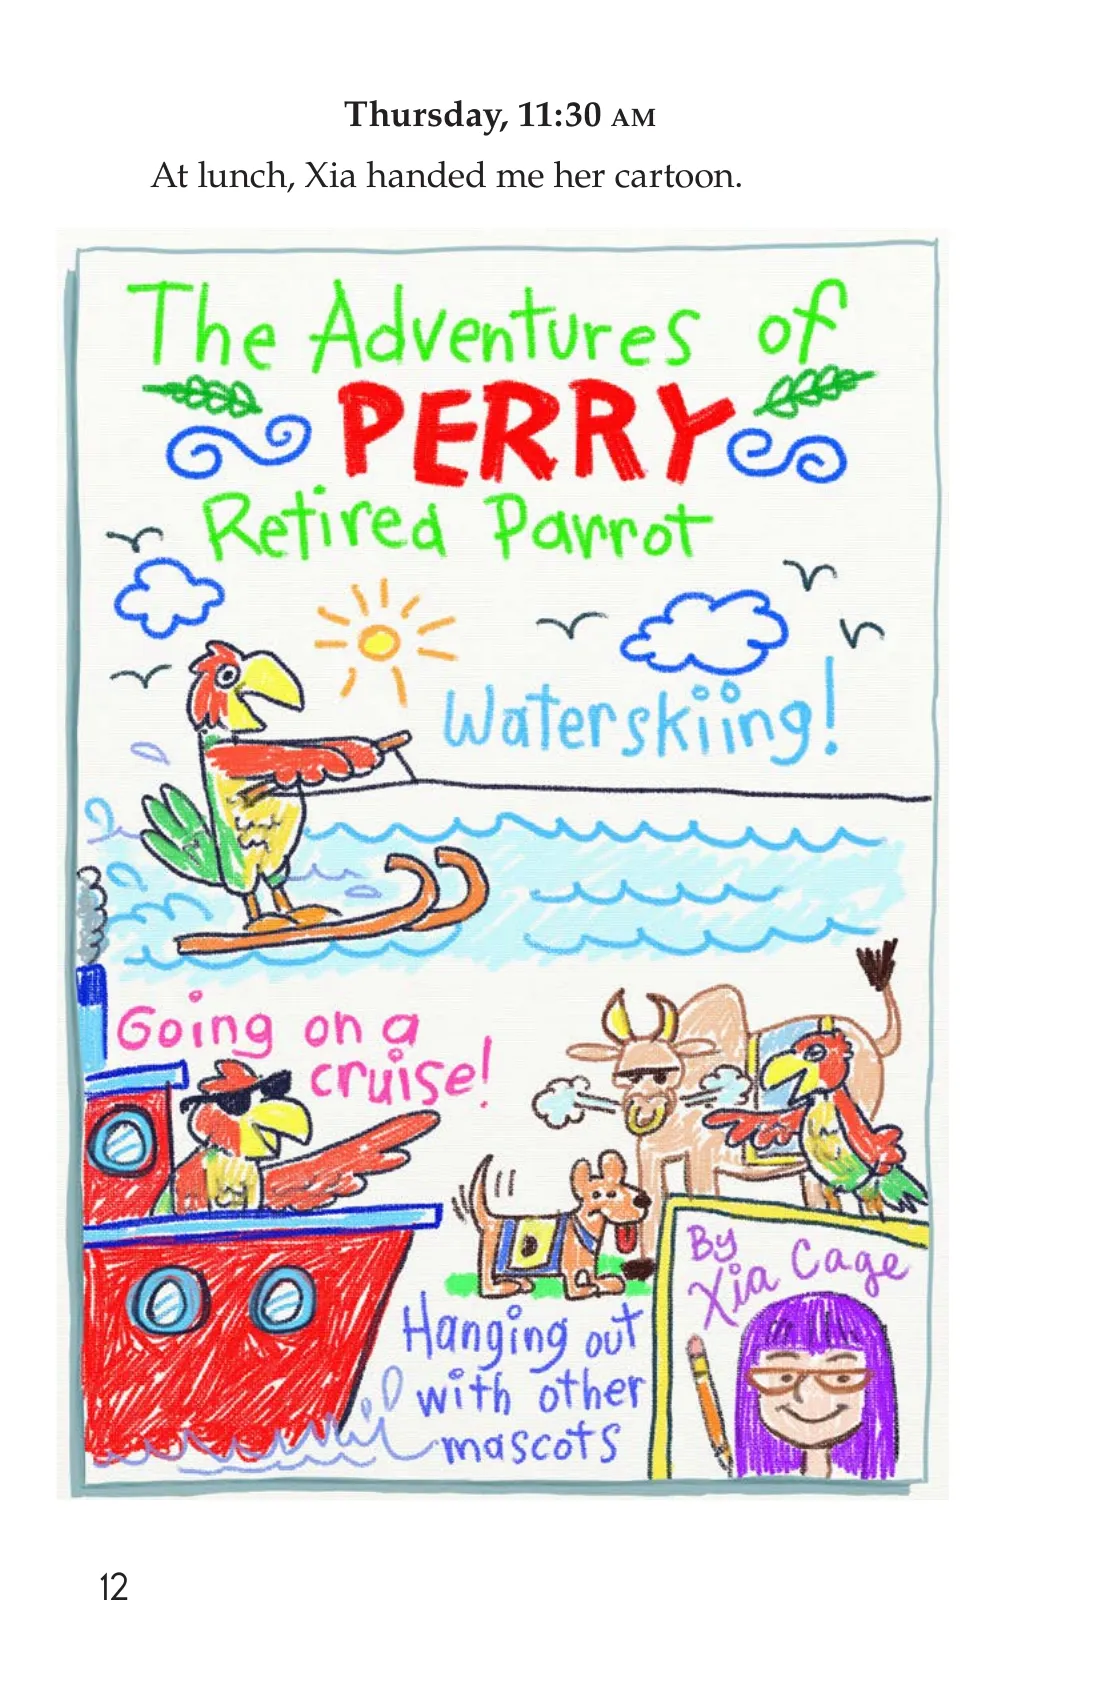 Thursday, 11:30 AM
At lunch, Xia handed me her cartoon.
The Adventures of
PERRY
Retired Parrot
Waterskiing!
Going on a
cruise!
By
Xia Cage
Hanging out
with other
mascots
12